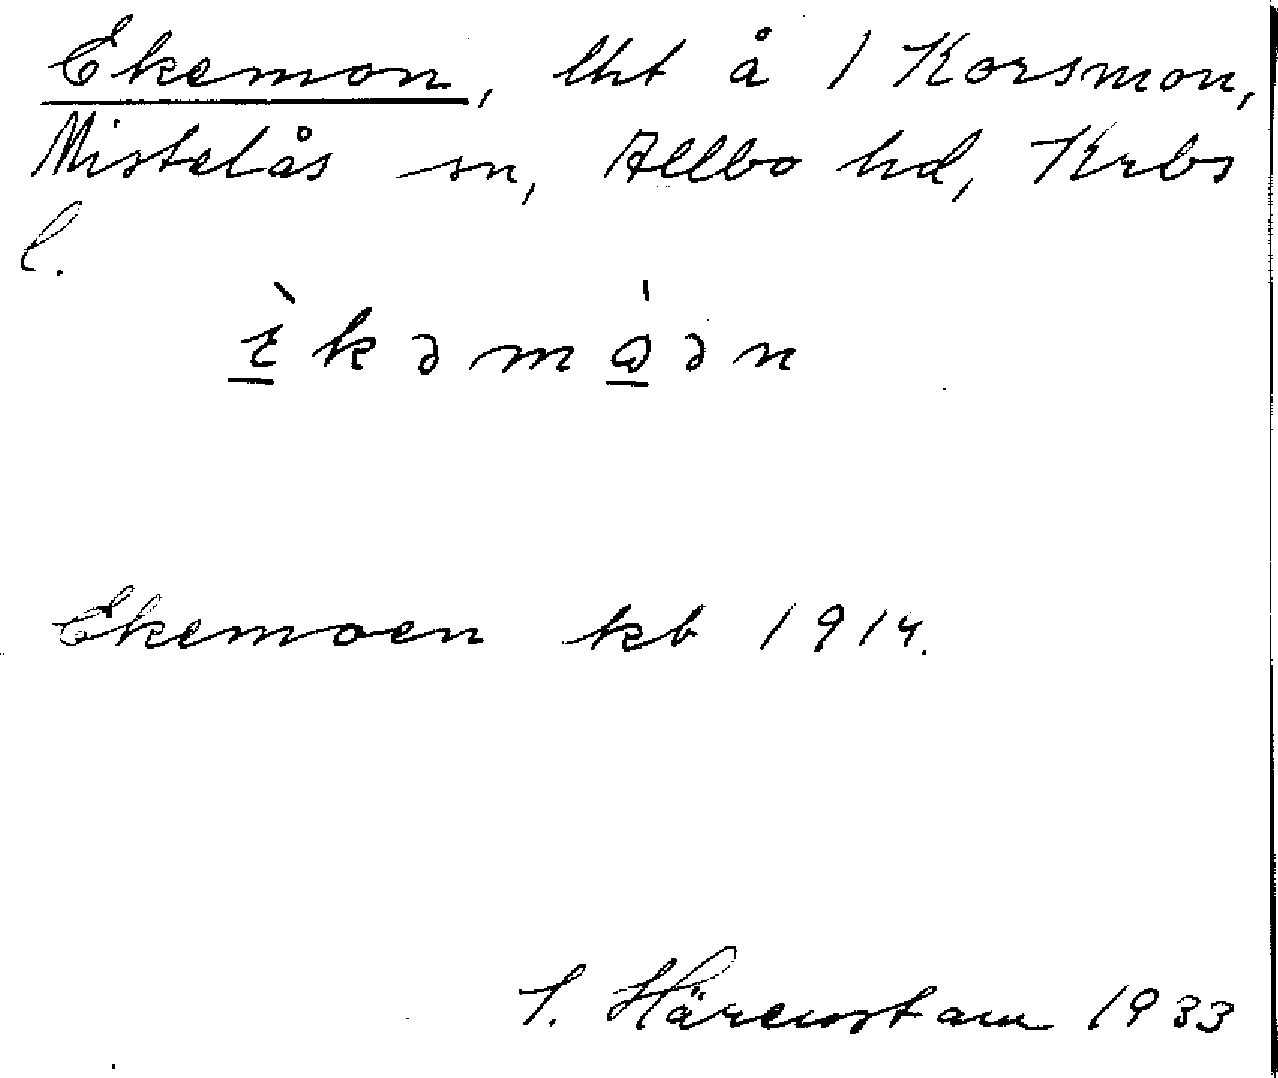 Ekemon, lht å 1 Korsmon,
Mistelås sn, Allbo hd, Krbs
l.
Ekemoen kb 1914.
Härenstam 1933